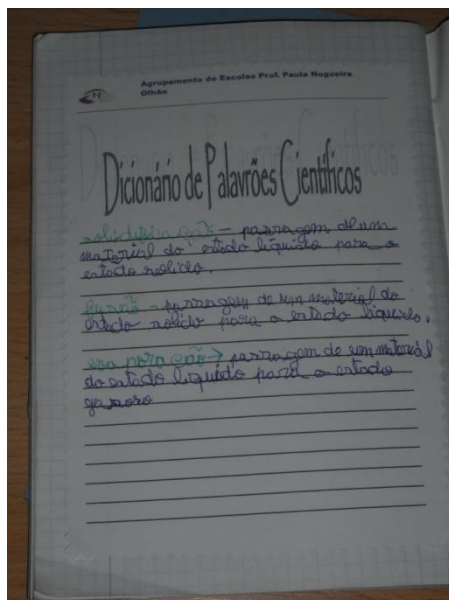 Agrupamento de Escolas Prof. Paula Nogueira
Olhão
Dicionário de Palavrões Científicos
solidificação – passagem de um
material do estado líquido para o
estado sólido.
fusão – passagem de um material do
estado sólido para o estado líquido.
evaporação → passagem de um material
do estado líquido para o estado
gasoso